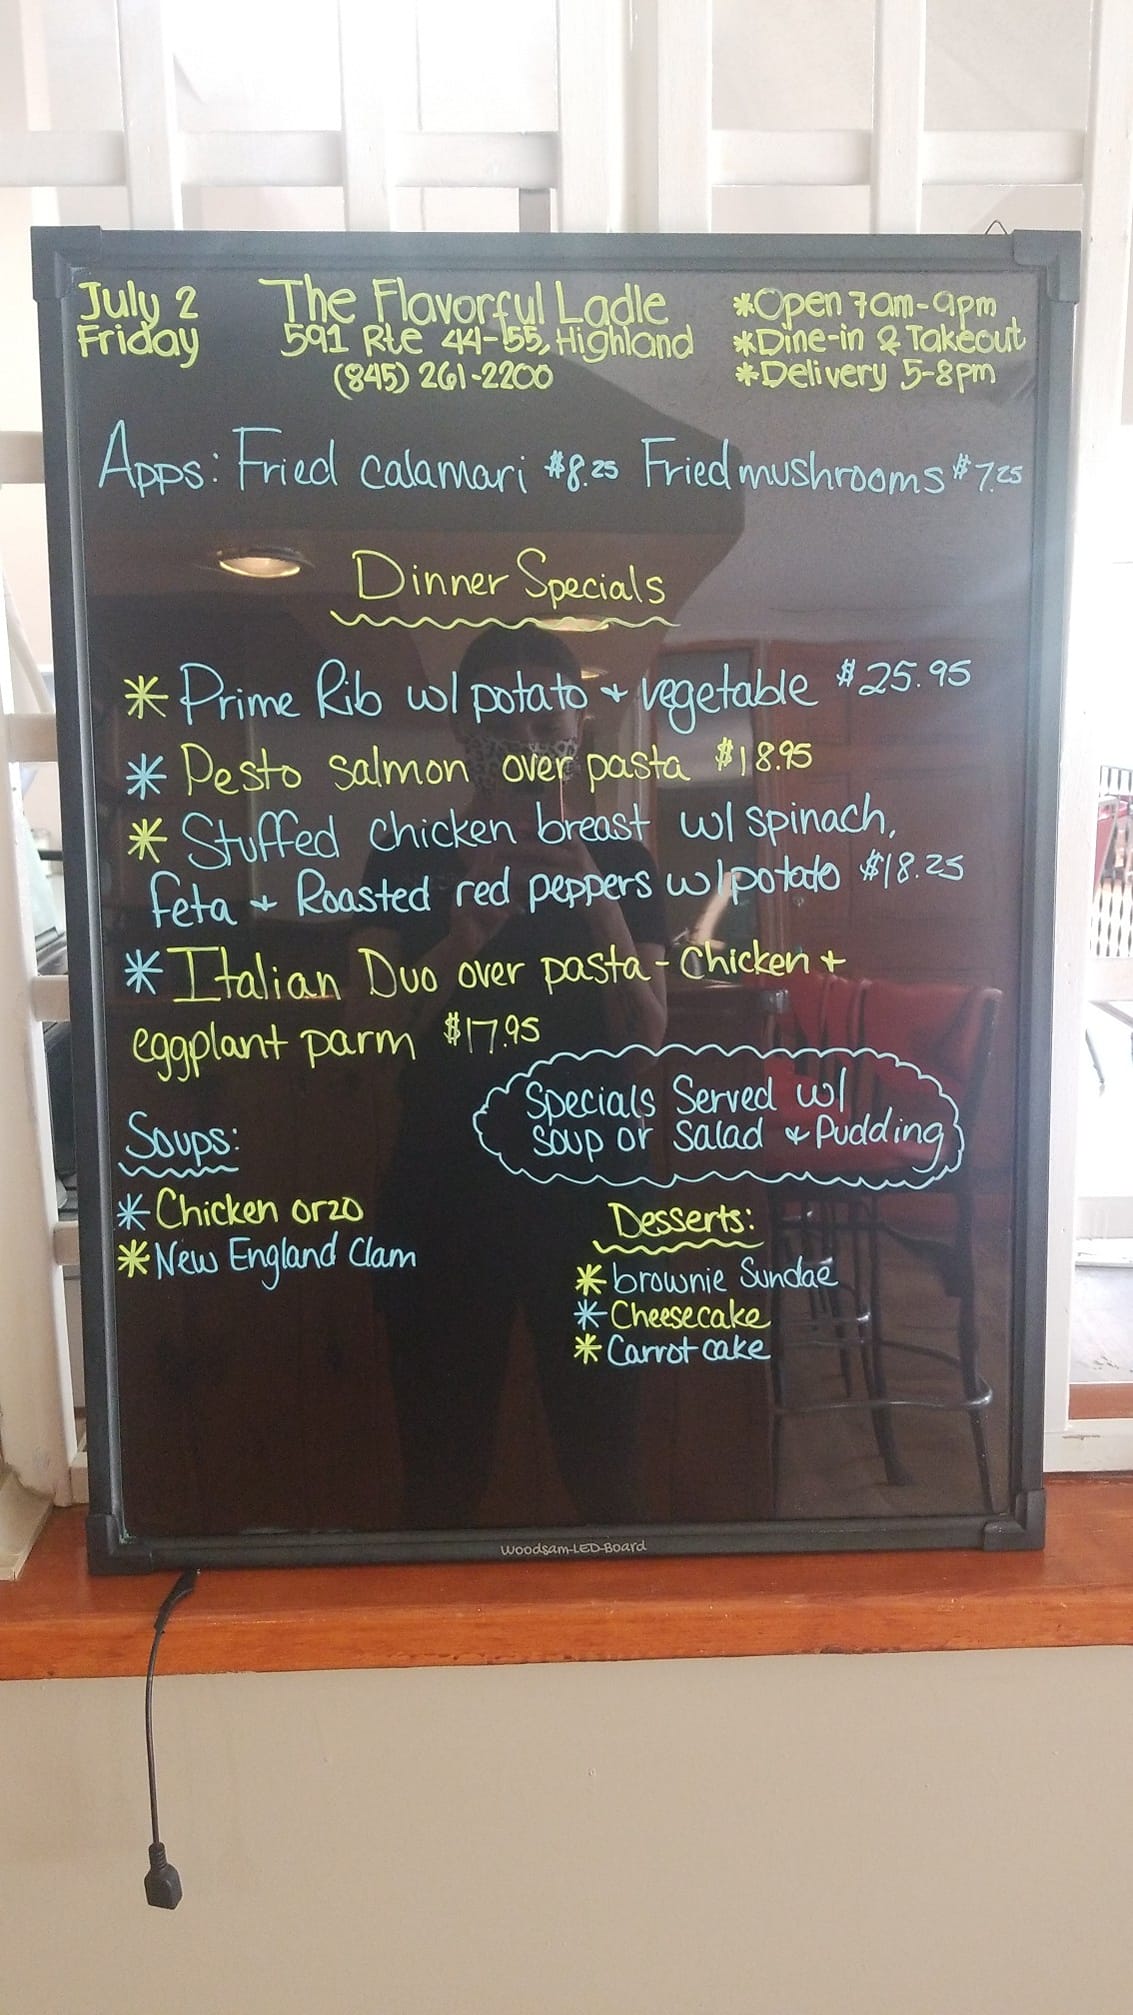 July 2
Friday
The Flavorful Ladle
591 Rte 44-55, Highland
(845) 261-2200
*Open 7am-9pm
*Dine-in & Takeout
*Delivery 5-8pm
Apps: Fried calamari $8.25 Fried mushrooms $7.25
Dinner Specials
* Prime Rib w/ potato + vegetable $25.95
* Pesto salmon over pasta $18.95
* Stuffed chicken breast w/ spinach,
feta + Roasted red peppers w/ potato $18.25
* Italian Duo over pasta - Chicken +
eggplant parm $17.95
Specials Served w/
soup or salad + Pudding
Soups:
* Chicken orzo
* New England Clam
Desserts:
* brownie Sundae
* Cheesecake
* Carrot cake
Woodsam-LED-Board